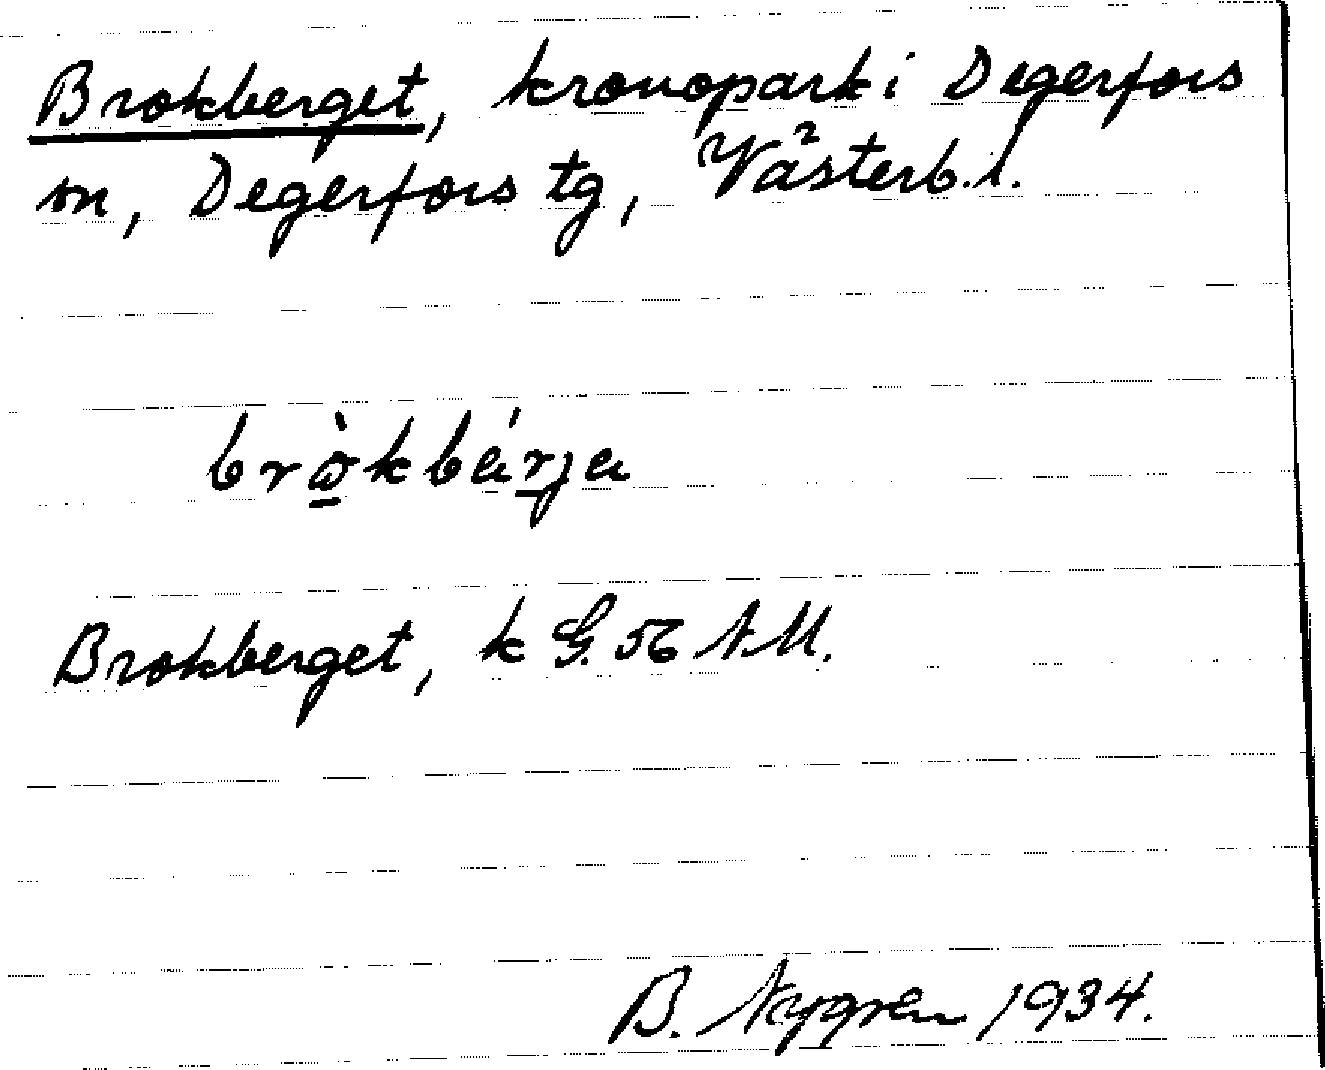 Brokberget, kronopark i Degerfors
sn, Degerfors tg, Västerb. l.
bròkbárja
Brokberget, k G. 56 N.M.
B. Nygren 1934.